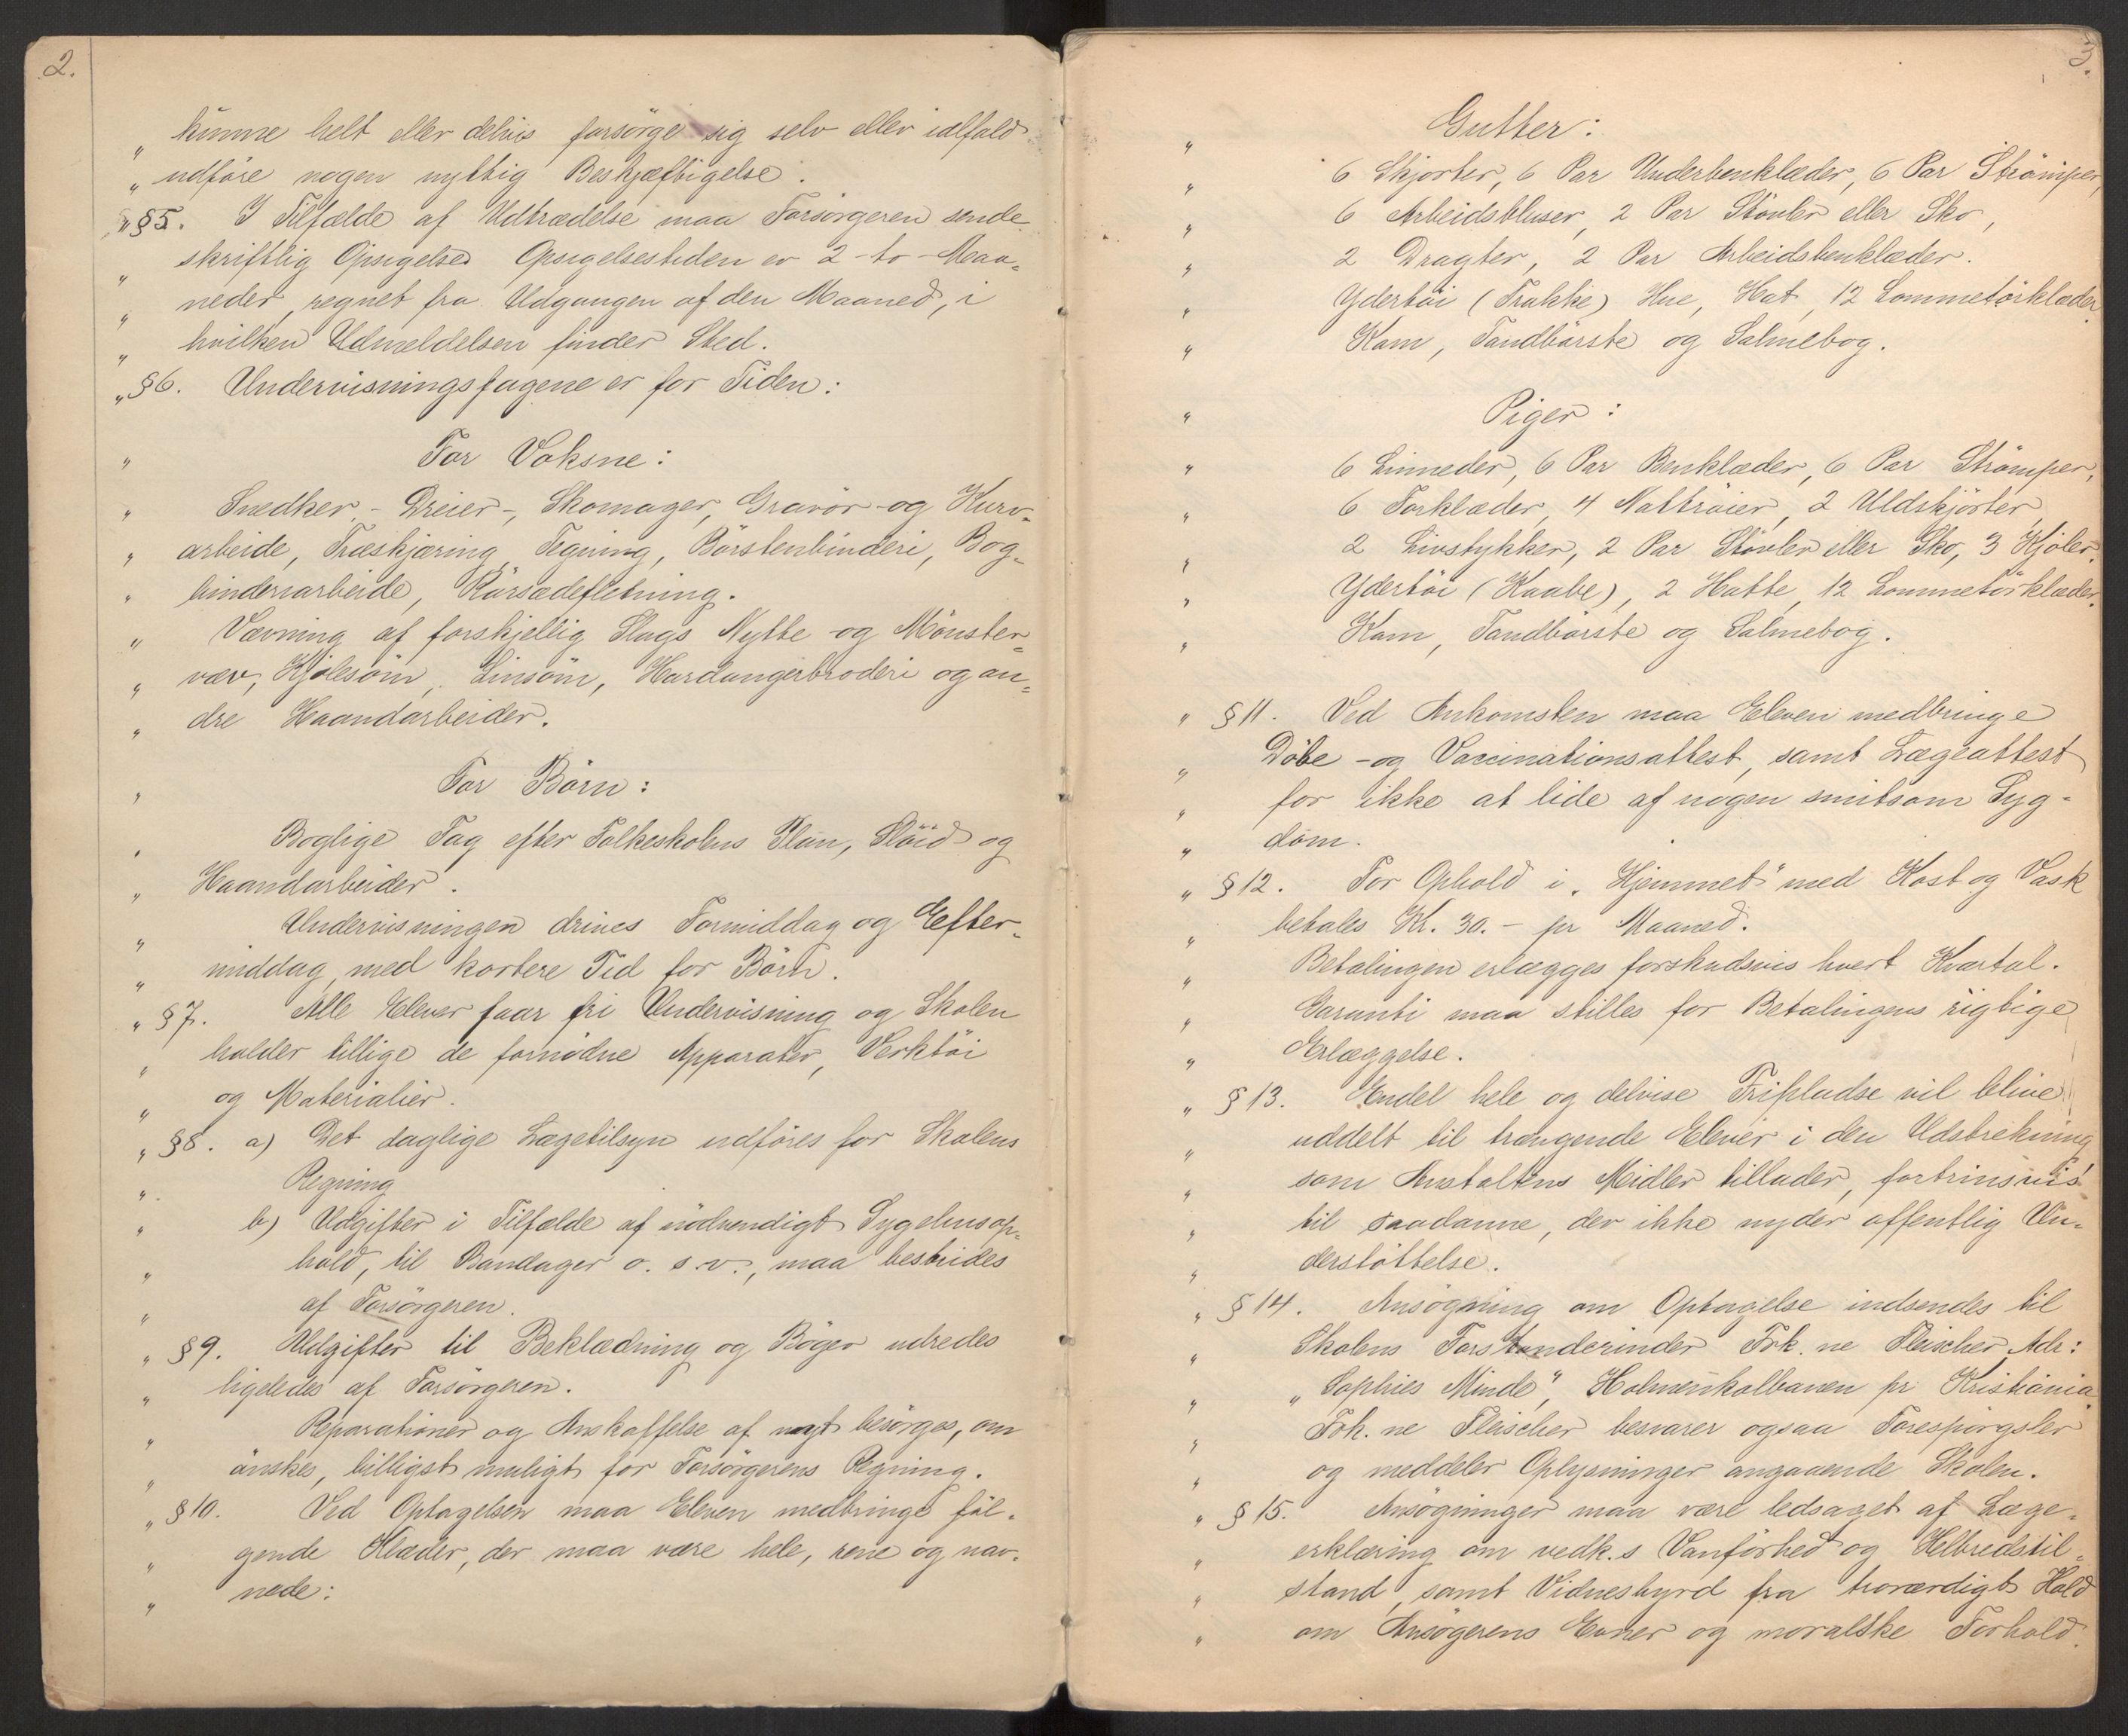 2.
„ kunne helt eller delvis forsörge sig selv eller ialfald
„ udföre nogen nyttig Beskjæftigelse.
„ § 5. I Tilfælde af Udtrædelse maa Forsörgeren sende
„ skriftlig Opsigelse. Opsigelsestiden er 2 - to - Maa=
„ neder, regnet fra Udgangen af den Maaned, i
„ hvilken Udmeldelsen finder Sted.
„ § 6. Undervisningsfagene er for Tiden:
„ For Voksne:
„ Snedker - Dreier -, Skomager, Gravör - og Kurv=
„ arbeide, Træskjæring, Tegning, Börstenbinderi, Bog=
„ binderarbeide, Rörsædefletning.
„ Vævning af forskjellig Slags Nytte - og Mönster=
„ væv, Kjolesöm, Linsöm, Hardangerbroderi og an=
„ dre Haandarbeider.
„ For Börn:
„ Boglige Fag efter Folkeskolens Plan, Slöid og
„ Haandarbeider.
„ Undervisningen drives Formiddag og Efter=
„ middag, med kortere Tid for Börn.
„ § 7. Alle Elever faar fri Undervisning og Skolen
„ holder tillige de fornödne Apparater, Verktöi
„ og Materialier.
„ § 8. a) Det daglige Lægetilsyn udföres for Skolens
„ Regning
„ b) Udgifter i Tilfælde af nödvendigt Sygehusop=
„ hold, til Bandager o. s. v., maa bestrides
„ af Forsörgeren.
„ § 9. Udgifter til Beklædning og Böger udredes
„ ligeledes af Forsörgeren.
„ Reparationer og Anskaffelse af nyt besörges, om
„ önskes, billigst muligt for Forsörgerens Regning.
„ § 10. Ved Optagelsen maa Eleven medbringe föl=
„ gende Klæder, der maa være hele, rene og nav=
„ nede:
3.
„ Gutter:
„ 6 Skjorter, 6 Par Underbenklæder, 6 Par Strömper,
„ 6 Arbeidsbluser, 2 Par Stövler eller Sko,
„ 2 Dragter, 2 Par Arbeidsbenklæder.
„ Ydertöi (Frakke) Hue, Hat, 12 Lommetörklæder,
„ Kam, Tandbörste og Salmebog.
„ Piger:
„ 6 Linneder, 6 Par Benklæder, 6 Par Strömper,
„ 6 Forklæder, 4 Nattröier, 2 Uldskjörter,
„ 2 Livstykker, 2 Par Stövler eller Sko, 3 Kjoler,
„ Ydertöi (Kaabe), 2 Hatte, 12 Lommetörklæder,
„ Kam, Tandbörste og Salmebog.
„ § 11. Ved Ankomsten maa Eleven medbringe
„ Döbe - og Vaccinationsattest, samt Lægeattest
„ for ikke at lide af nogen smitsom Syg=
„ dom.
„ § 12. For Ophold i „Hjemmet" med Kost og Vask
„ betales Kr. 30. - pr Maaned.
„ Betalingen erlægges forskudsvis hvert Kvartal.
„ Garanti maa stilles for Betalingens rigtige
„ Erlæggelse.
„ § 13. Endel hele og delvise Fripladse vil blive
„ uddelt til trængende Elever i den Udstrekning
„ som Anstaltens Midler tillader, fortrinsvis
„ til saadanne, der ikke nyder offentlig Un=
„ derstöttelse.
„ § 14. Ansögning om Optagelse indsendes til
„ Skolens Forstanderinder Frk. ne Fleischer, Adr:
„ „Sophies Minde", Holmenkolbanen pr Kristiania
„ Frk. ne Fleischer besvarer ogsaa Forespörgsler
„ og meddeler Oplysninger angaaende Skolen.
„ § 15. Ansögninger maa være ledsaget af Læge=
„ erklæring om vedk.s Vanförhed og Helbredstil=
„ stand, samt Vidnesbyrd fra troværdigt Hold
„ om Ansögerens Evner og moralske Forhold.